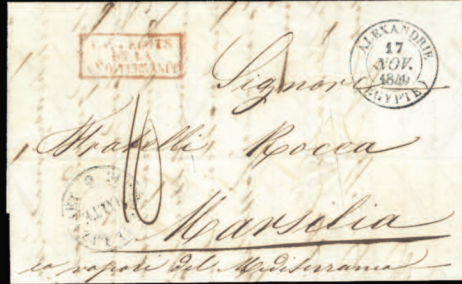 PAQUEBOTS
DE LA
MÉDITERRANÉE
ALEXANDRIE
17
NOV.
1840
EGYPTE
Signori
Fratelli Rocca
16
Marsilia
co vapori del Mediterraneo